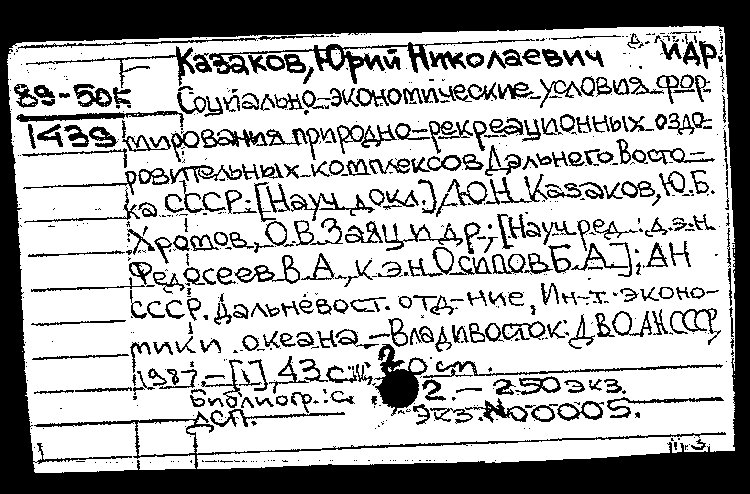 Казаков, Юрий Николаевич и др.
89-50к
1439
Социально-экономические условия фор-
мирования природно-рекреационных оздо-
ровительных комплексов Дальнего Восто-
ка СССР: [Науч. докл.] / Ю.Н. Казаков, Ю.Б.
Хромов, О.В. Заяц и др.; [Науч. ред.: д.э.н.
Федосеев В.А., к.э.н. Осипов Б.А.]; АН
СССР. Дальневост. отд-ние, Ин-т. эконо-
мики океана. — Владивосток: ДВО АН СССР,
1987. — [1], 43 с.; 20 см.
Библиогр.: с. 42. — 250 экз.
ДСП. Экз. № 00005.